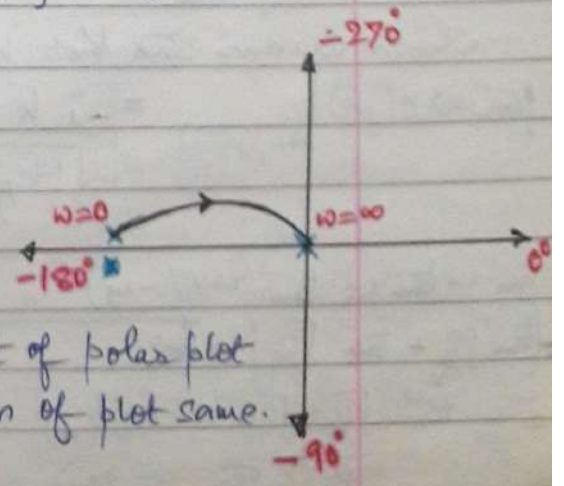 -270°
ω=0
ω=∞
-180°
0°
of polar plot
of plot same.
-90°